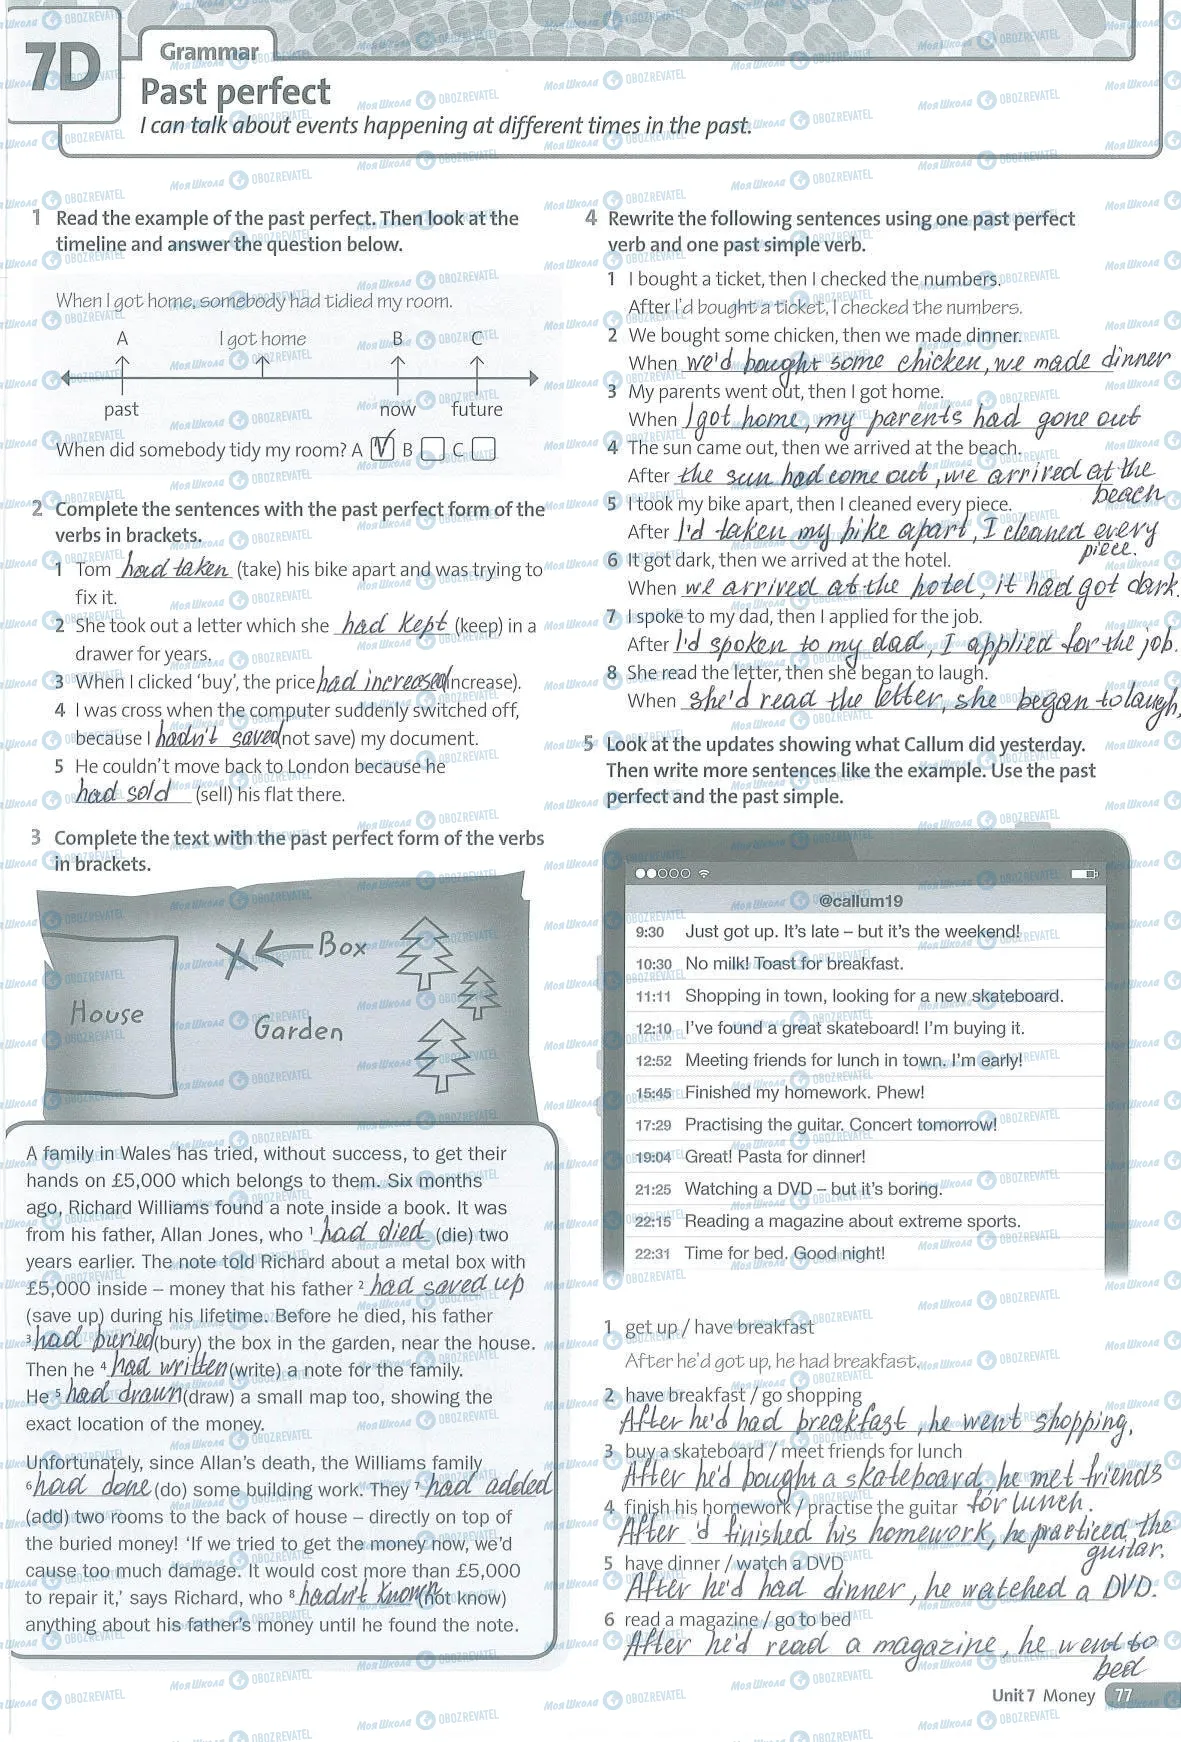 7D
Grammar
Past perfect
I can talk about events happening at different times in the past.
1 Read the example of the past perfect. Then look at the
timeline and answer the question below.
When I got home, somebody had tidied my room.
A I got home B C
past now future
When did somebody tidy my room? A V B C
2 Complete the sentences with the past perfect form of the
verbs in brackets.
1 Tom had taken (take) his bike apart and was trying to
fix it.
2 She took out a letter which she had kept (keep) in a
drawer for years.
3 When I clicked ‘buy’, the price had increased (increase).
4 I was cross when the computer suddenly switched off,
because I hadn't saved (not save) my document.
5 He couldn’t move back to London because he
had sold (sell) his flat there.
3 Complete the text with the past perfect form of the verbs
in brackets.
Box
House
Garden
A family in Wales has tried, without success, to get their
hands on £5,000 which belongs to them. Six months
ago, Richard Williams found a note inside a book. It was
from his father, Allan Jones, who ¹ had died (die) two
years earlier. The note told Richard about a metal box with
£5,000 inside – money that his father ² had saved up
(save up) during his lifetime. Before he died, his father
³ had buried (bury) the box in the garden, near the house.
Then he ⁴ had written (write) a note for the family.
He ⁵ had drawn (draw) a small map too, showing the
exact location of the money.
Unfortunately, since Allan’s death, the Williams family
⁶ had done (do) some building work. They ⁷ had added
(add) two rooms to the back of house – directly on top of
the buried money! ‘If we tried to get the money now, we’d
cause too much damage. It would cost more than £5,000
to repair it,’ says Richard, who ⁸ hadn't known (not know)
anything about his father’s money until he found the note.
4 Rewrite the following sentences using one past perfect
verb and one past simple verb.
1 I bought a ticket, then I checked the numbers.
After I’d bought a ticket, I checked the numbers.
2 We bought some chicken, then we made dinner.
When we'd bought some chicken, we made dinner
3 My parents went out, then I got home.
When I got home, my parents had gone out
4 The sun came out, then we arrived at the beach.
After the sun had come out, we arrived at the
beach
5 I took my bike apart, then I cleaned every piece.
After I'd taken my bike apart, I cleaned every
piece.
6 It got dark, then we arrived at the hotel.
When we arrived at the hotel, it had got dark.
7 I spoke to my dad, then I applied for the job.
After I'd spoken to my dad, I applied for the job.
8 She read the letter, then she began to laugh.
When she'd read the letter, she began to laugh,
5 Look at the updates showing what Callum did yesterday.
Then write more sentences like the example. Use the past
perfect and the past simple.
@callum19
9:30 Just got up. It’s late – but it’s the weekend!
10:30 No milk! Toast for breakfast.
11:11 Shopping in town, looking for a new skateboard.
12:10 I’ve found a great skateboard! I’m buying it.
12:52 Meeting friends for lunch in town. I’m early!
15:45 Finished my homework. Phew!
17:29 Practising the guitar. Concert tomorrow!
19:04 Great! Pasta for dinner!
21:25 Watching a DVD – but it’s boring.
22:15 Reading a magazine about extreme sports.
22:31 Time for bed. Good night!
1 get up / have breakfast
After he’d got up, he had breakfast.
2 have breakfast / go shopping
After he'd had breakfast, he went shopping.
3 buy a skateboard / meet friends for lunch
After he'd bought a skateboard, he met friends
for lunch.
4 finish his homework / practise the guitar
After 'd finished his homework, he practiced the
guitar.
5 have dinner / watch a DVD
After he'd had dinner, he watched a DVD.
6 read a magazine / go to bed
After he'd read a magazine, he went to
bed
Unit 7 Money 77
МояШкола OBOZREVATEL